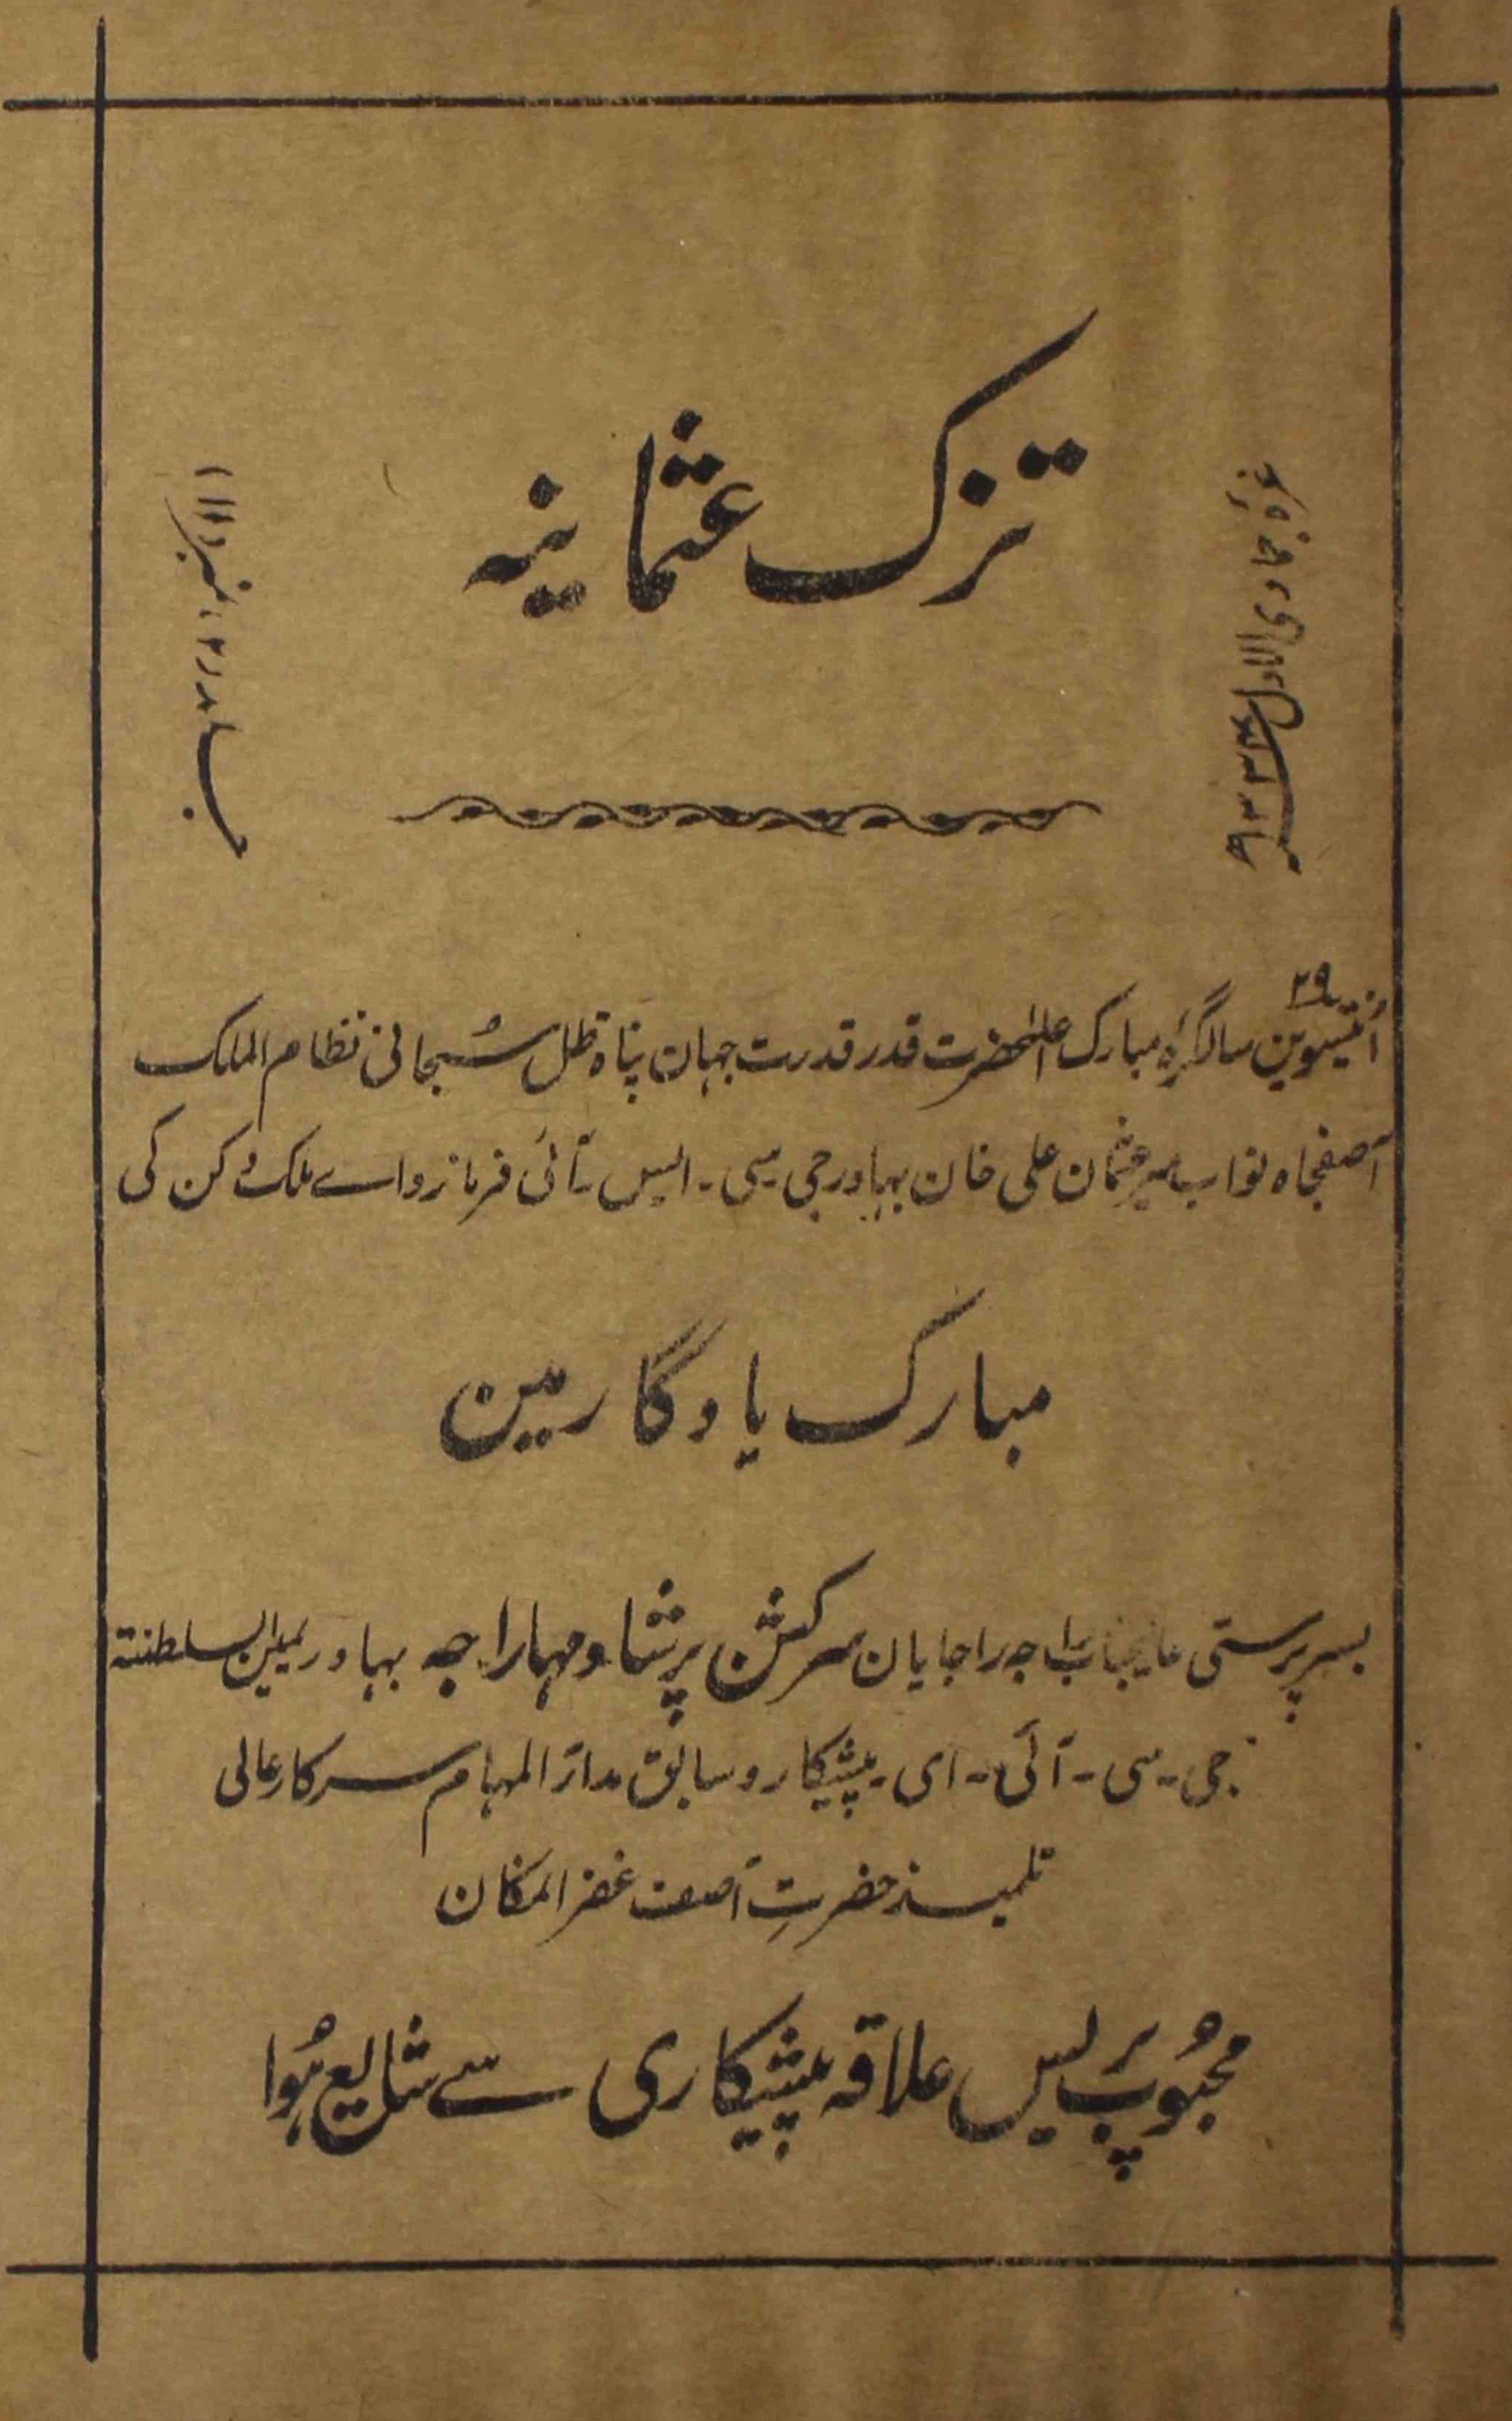 تزک عثمانیہ
غرہ جمادی الاول سنہ ۱۳۳۴ھ
جلد (۲) نمبر (۱۱)
۲۹
اُنتیسوین سالگرہِ مبارک اعلحضرت قدر قدرت جہان پناہ ظل سُبحانی نظام الملک
آصفجاہ نواب میر عثمان علی خان بہادر جی۔سی۔ایس۔آئی فرمانروائے ملک دکن کی
مبارک یادگار مین
بسرپرستی عالیجناب راجہ راجایان سر کشن پرشاد مہاراجہ بہادر یمین السلطنتہ
جی۔سی۔آئی۔ای۔پیشکار و سابق مدار المہام سرکار عالی
تلمیذ حضرتِ آصف غفر المکان
محبُوب پریس علاقہ پیشکاری سے شایع ہُوا